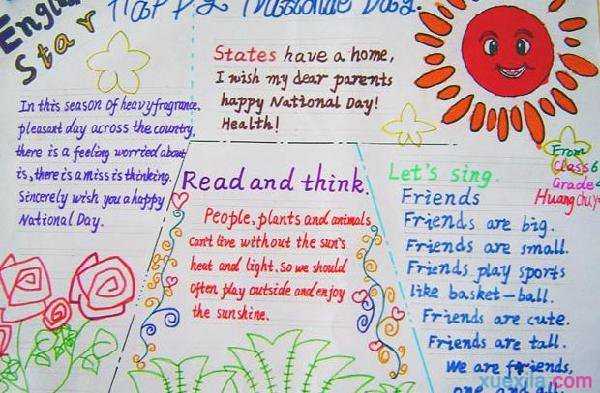 English
Star
Happy National Day.
States have a home,
I wish my dear parents
happy National Day!
Health!
In this season of heavy fragrance,
pleasant day across the country,
there is a feeling worried about
is, there is a miss is thinking.
Sincerely wish you a happy
National Day.
Read and think.
People, plants and animals
can't live without the sun's
heat and light. so we should
often play outside and enjoy
the sunshine.
Let's sing.
Friends
Friends are big.
Friends are small.
Friends play sports
like basket-ball.
Friends are cute.
Friends are tall.
We are friends,
one and all.
From
Class 6
Grade
Huang
xuexila.com